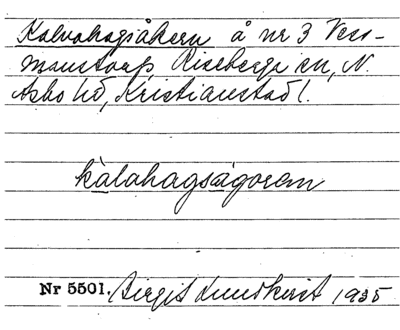 Kalvahagsåkern å nr 3 Vess-
manstorp Riseberga sn, N.
Åsbo hd, Kristianstad l.
kàlahagsågoren
Nr 5501. Birgit Lundkvist 1935